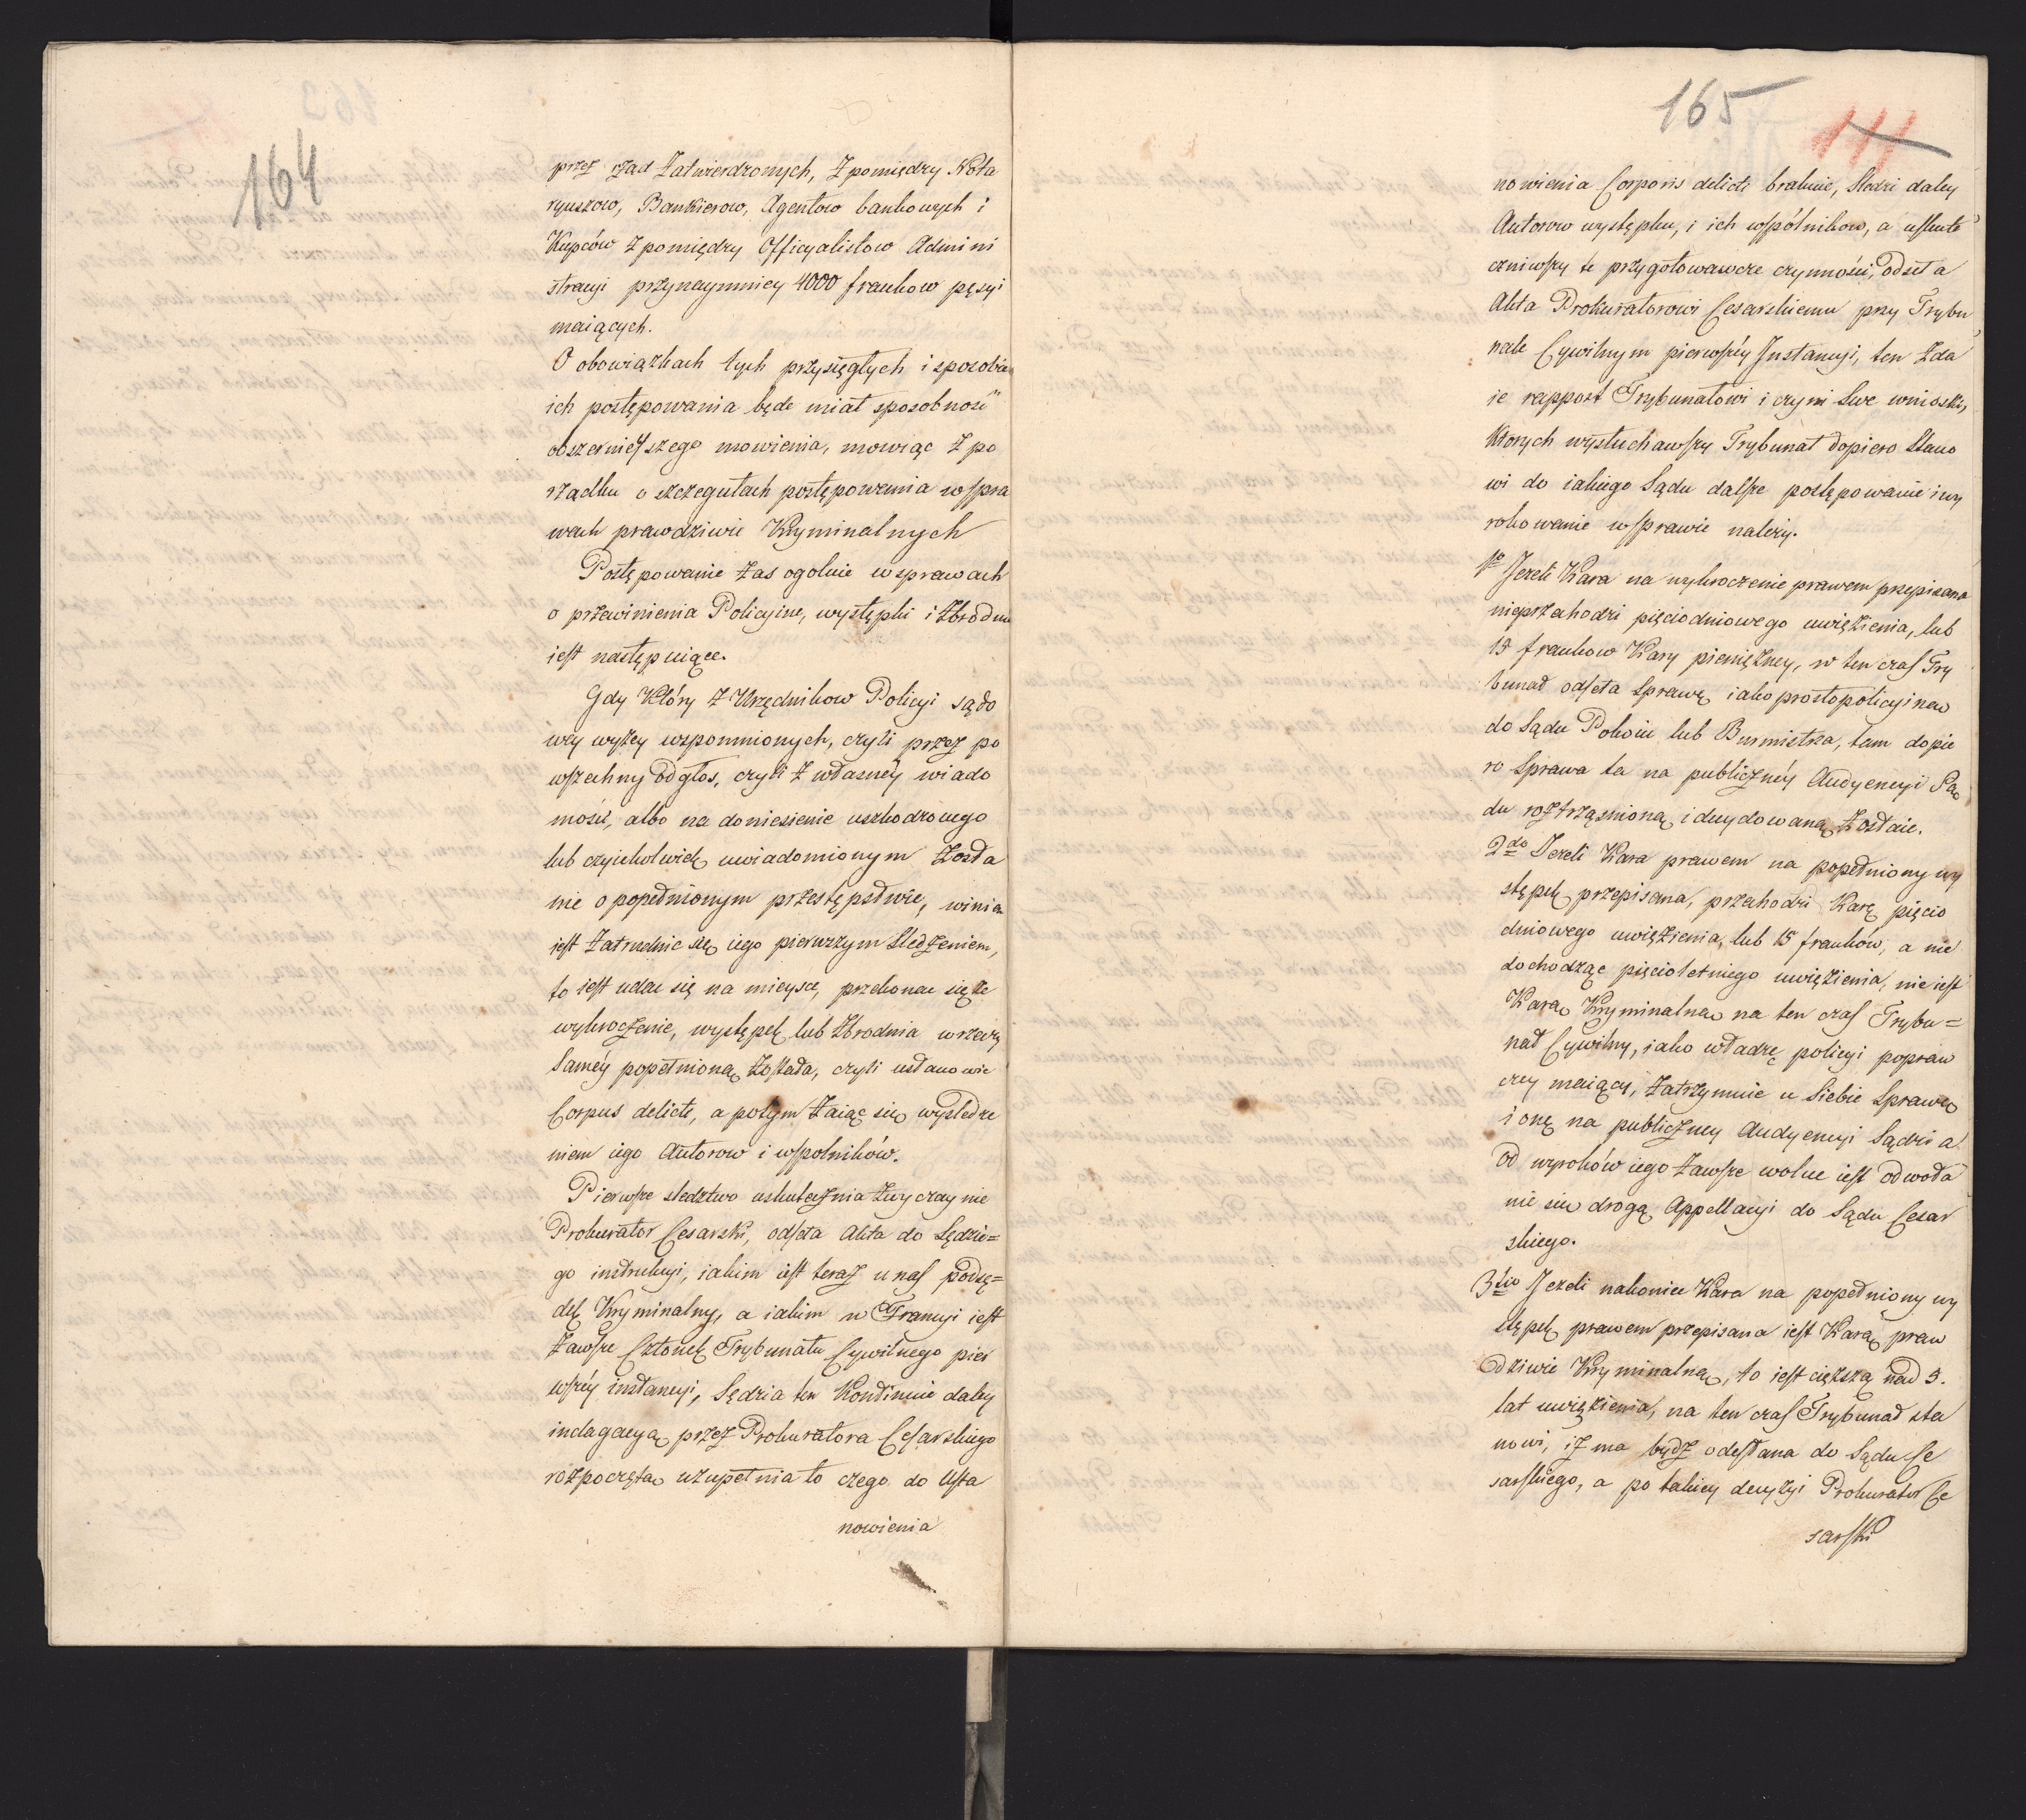 164
przez rząd Zatwierdzonych, Z pomiędzy Nota
ryuszow, Bankierow, Agentow bankowych i
Kupców z pomiędzy Officyalistow Admini
stracyi przynaymniey 4000 frankow pęsyi
maiących.
O obowiązkach tych przysięgłych i sposobie
ich postępowania będe miał sposobność
obszernieyszego mowienia, mowiąc Z po
rządku o szczegułach postępowania w spra
wach prawdziwie Kryminalnych
Postępowanie Zas ogolnie w sprawach
o przewinienia Policyine, występki i Zbrodnie
iest następuiące.
Gdy Który Z Urzędnikow Policyi sądo
wey wyżey wspomnionych, czyli przez po
wszechny odgłos, czyli Z własney wiado
mości, albo na doniesienie uszkodzonego
lub czyiekolwiek uwiadomionym Zosta
nie o popełnionym przestępstwie, winien
iest Zatrudnic się iego pierwszym Sledzeniem,
to iest udac się na mieysce, przekonac się że
wykroczenie, występek lub Zbrodnia w rzeczy
Saméy popełnioną Została, czyli ustanowic
Corpus delicti, a potym Zaiąc się wysledze
niem iego Autorow i wspolników.
Pierwsze sledztwo uskutecznia Zwyczaynie
Prokurator Cesarski, odseła Akta do Sędzie=
go instrukcyi, iakim iest teraz u nas podsę=
dek Kryminalny, a iakim w Francyi iest
Zawsze Członek Trybunału Cywilnego pier
wszéy instancyi, Sędzia ten Kontinuie daley
indagacyą przez Prokuratora Cesarskiego
rozpoczętą uzupełnia to czego do Usta
nowienia
165
111
nowienia Corporis delicti brakuie, Sledzi daley
Autorow występku, i ich wspólnikow, a uskute
czniwszy te przygotowawcze czynności, odseła
Akta Prokuratorowi Cesarskiemu przy Trybu
nale Cywilnym pierwszéy Instancyi, ten Zda
ie rapport Trybunałowi i czyni Swe wnioski,
Których wysłuchawszy Trybunał dopiero Stano
wi do iakiego Sądu dalsze postępowanie i wy
rokowanie w sprawie należy.
1º Jezeli Kara na wykroczenie prawem przepisana
nieprzechodzi pięciodniowego uwięzienia, lub
15 frankow Kary pieniężney, w ten czas Try
bunał odseła Sprawę iako prostopolicyiną
do Sądu Pokoiu lub Burmistrza, tam dopie
ro Sprawa ta na publiczney Audyencyi Są
du roztrząsnioną i decydowaną Zostaie.
2do Jezeli Kara prawem na popełniony wy
stępek przepisana, przechodzi Karę pięcio
dniowego uwięzienia, lub 15 franków, a nie
dochodząc pięcioletniego uwięzienia, nie iest
Karą Kryminalną na ten czas Trybu=
nał Cywilny, iako władzę policyi popraw
czey maiący, Zatrzymuie u Siebie Sprawę
i onę na publiczney Audyencyi Sądzi a
od wyroków iego Zawsze wolne iest odwoła
nie się drogą Appellacyi do Sądu Cesar
skiego.
3tio Jezeli nakoniec Kara na popełniony wy
stępek prawem przepisana iest Karą praw
dziwie Kryminalną, to iest cięższą nad 5.
lat uwięzienia, na ten czas Trybunał sta
nowi, iż ma bydź odesłana do Sądu Ce
sarskiego, a po takiey decyzyi Prokurator Ce
sarski